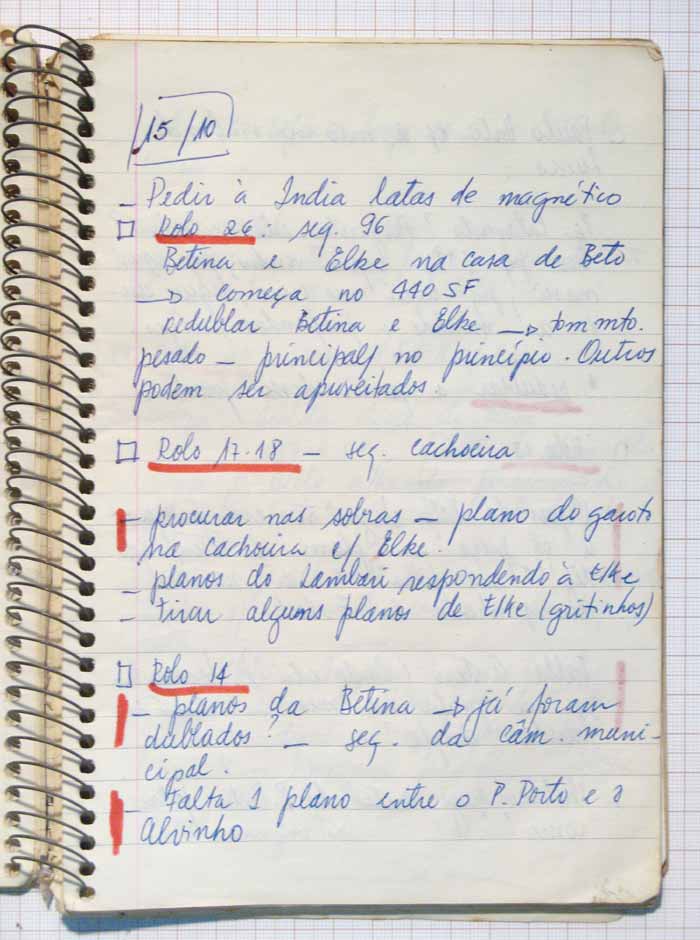 15/10
- Pedir à India latas de magnético
Rolo 26 - seq. 96
Betina e Elke na casa de Beto
→ começa no 440 SF
redublar Betina e Elke → tom mto.
pesado - principal/ no princípio. Outros
podem ser aproveitados.
Rolo 17.18 - seq. cachoeira
- procurar nas sobras - plano do garoto
na cachoeira c/ Elke.
- planos do Lambari respondendo à Elke
- tirar alguns planos de Elke (gritinhos)
Rolo 14
- planos da Betina → já foram
dublados? - seq. da câm. muni-
cipal.
- Falta 1 plano entre o P. Porto e o
Alvinho